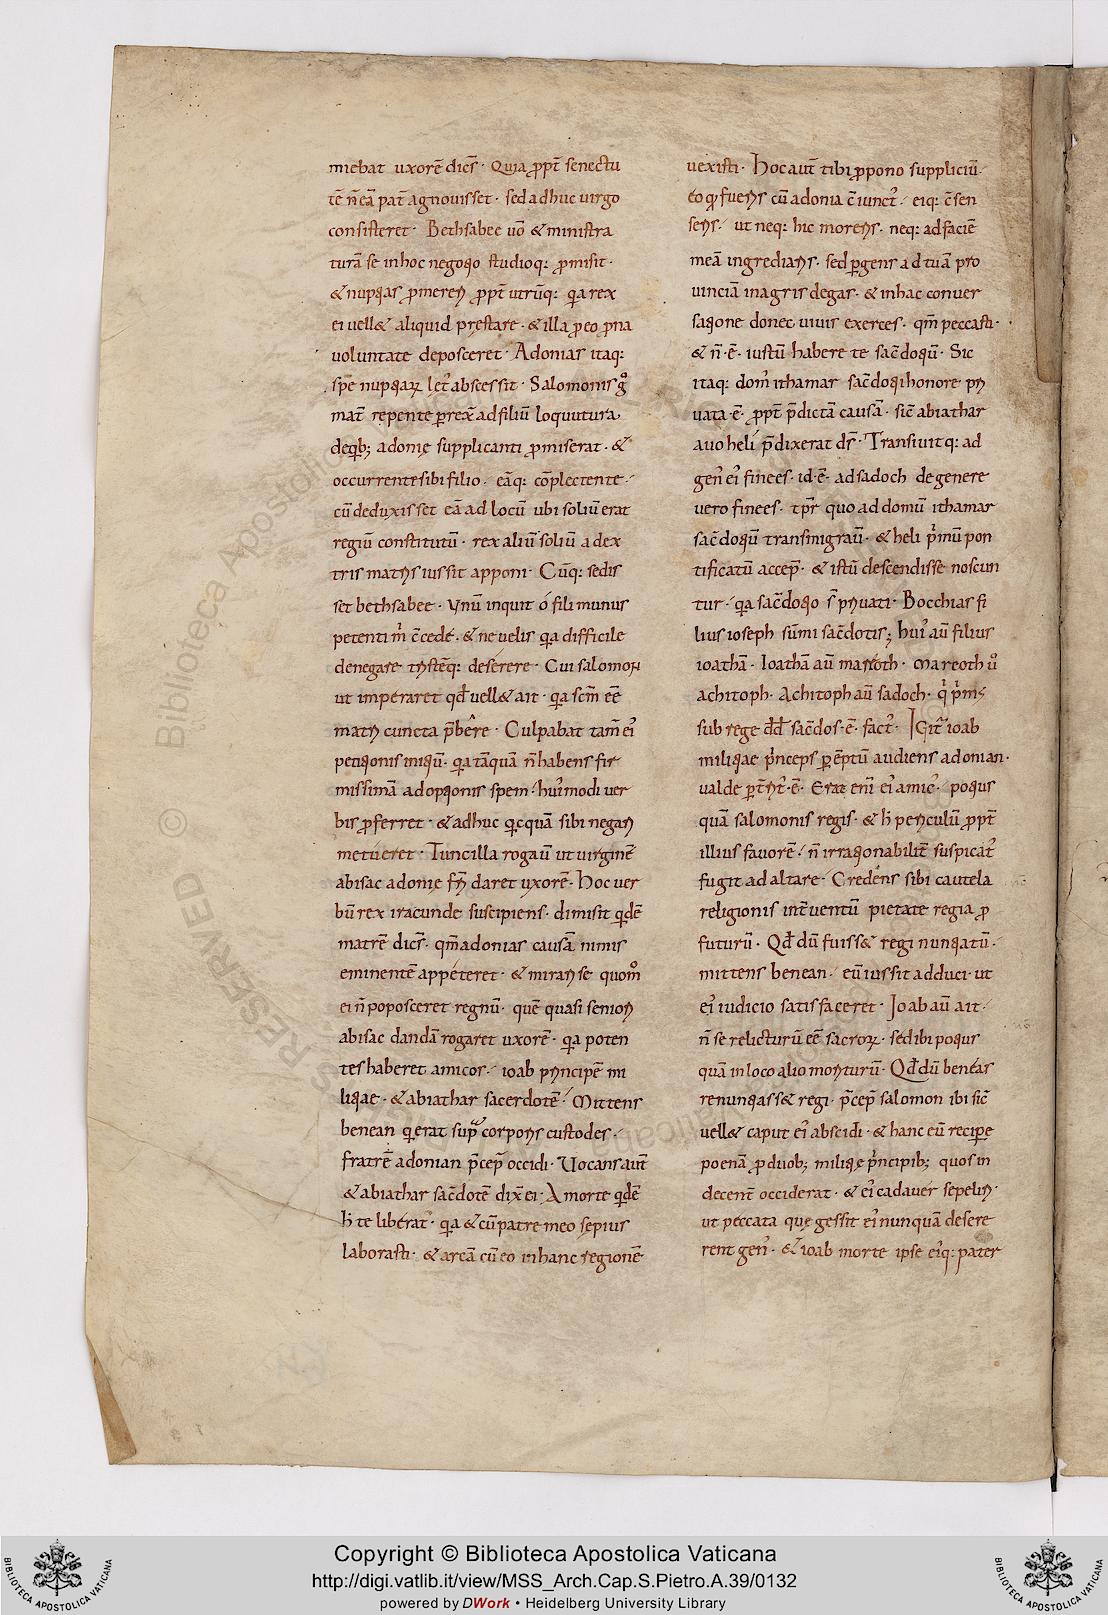 mebat uxorē dicēs· Quia ꝓpt̄ senectu
tē n̄ eā pat̄ agnouisset· sed adhuc uirgo
consisteret· Bethsabee uō & ministra
turā se in hoc negotio studioq: ꝓmisit·
& nuptias ꝓmereri ꝓpt̄ utrūq: quia rex
ei uell& aliquid prestare· & illa ꝓ eo ꝓna
uoluntate deposceret· Adonias itaq:
spē nuptiaꝝ let᾽ abscessit· Salomonis gͦ
mat̄ repente ꝑrexᷓ ad filiū loquutura
de qib; adonię supplicanti ꝓmiserat· &
occurrente sibi filio· eāq: cōplectente·
cū deduxisset eā ad locū ubi soliū erat
regiū constitutū· rex aliū soliū a dex
tris matris iussit apponi· Cūq: sedis
set bethsabee· Vnū inquit ó fili munus
petenti m̄ c̄cede· & ne uelis quia difficile
denegare tristeq: deserere· Cui salomon
ut imperaret qd̄ uell& ait· quia scm̄ eē
matri cuncta p̄bere· Culpabat tam̄ ei᾽
petitionis iniqū· quia tāquā n̄ habens fir
missimā adoptionis spem· hui᾽modi uer
bis ꝓferret· & adhuc quicquā sibi negari
metueret· Tunc illa rogauit ut uirginē
abisac adonie fr̄i daret uxorē· Hoc uer
bū rex iracunde suscipiens· dimisit quidē
matrē dicēs· qm̄ adonias causā nimis
eminentē appeteret· & mirari se quomͦ
ei n̄ poposceret regnū· quē quasi seniori
abisac dandā rogaret uxorē· quia poten
tes haberet amicos· ioab principē mi
litiae· & abiathar sacerdotē· Mittens
benean qui erat supra corporis custodes·
fratrē adonian p̄cep̄ occidi· Vocans aut̄
& abiathar sac̄dotē dix̄ ei· A morte quidē
h᾽ te liberat᾽· quia & cū patre meo sepius
laborasti· & arcā cū eo in hanc regionē
uexisti· Hoc aut̄ tibi ꝓpono suppliciū·
eo qd fueris cū adonia c̄iunct᾽· eiq: c̄sen
seris· ut neq: hic moreris· neq: ad faciē
meā ingrediaris· sed ꝑgens ad tuā pro
uinciā in agris degas· & in hac conuer
satione donec uiuis exerces· qm̄ peccasti·
& n̄·ē· iustū habere te sac̄dotiū· Sic
itaq: dom᾽ ithamar sac̄dotii honore pri
uata·ē· ꝓpt̄ p̄dictā causā· sic̄ abiathar
auo heli p̄dixerat ds̄· Transiuitq: ad
gen᾽ ei᾽ finees· id·ē· ad sadoch de genere
uero finees· tpr̄ quo ad domū ithamar
sac̄dotiū transmigrauit· & heli primū pon
tificatū accep̄· & istū descendisse noscun
tur· quia sac̄dotio s̄ priuati· Bocchias fi
lius ioseph sūmi sac̄dotis; hui᾽ aū filius
ioathā· Ioathā aū maroth· mareoth uͦ
achitoph· Achitoph aū sadoch· qi prim᾽
sub rege dd̄ sac̄dos·ē· fact᾽· Igit᾽ ioab
militiae princeps ꝑēptū audiens adonian·
ualde ꝑt̄rit᾽·ē· Erat enī ei᾽ amic᾽· potius
quā salomonis regis· & h᾽ periculū ꝓpt̄
illius fauorē· n̄ irrationabilit̄ suspicat᾽
fugit ad altare· Credens sibi cautela
religionis int̄uentū pietate regia ꝓ
futurū· Qd̄ dū fuiss& regi nuntiatū·
mittens benean· eū iussit adduci· ut
ei᾽ iudicio satisfaceret· Ioab aū ait·
n̄ se relicturū eē sacroꝝ· sed ibi potius
quā in loco alio moriturū· Qd̄ dū beneas
renuntiass& regi· p̄cep̄ salomon ibi sic̄
uell& caput ei᾽ abscidi· & hanc eū recipe
poenā ꝓ duob; militię principib; quos in
decent̄ occiderat· & ei᾽ cadauer sepeliri·
ut peccata quę gessit ei᾽ nunquā desere
rent gen᾽· & ioab morte ipse ei᾽q: pater
Copyright © Biblioteca Apostolica Vaticana
http://digi.vatlib.it/view/MSS_Arch.Cap.S.Pietro.A.39/0132
powered by DWork • Heidelberg University Library